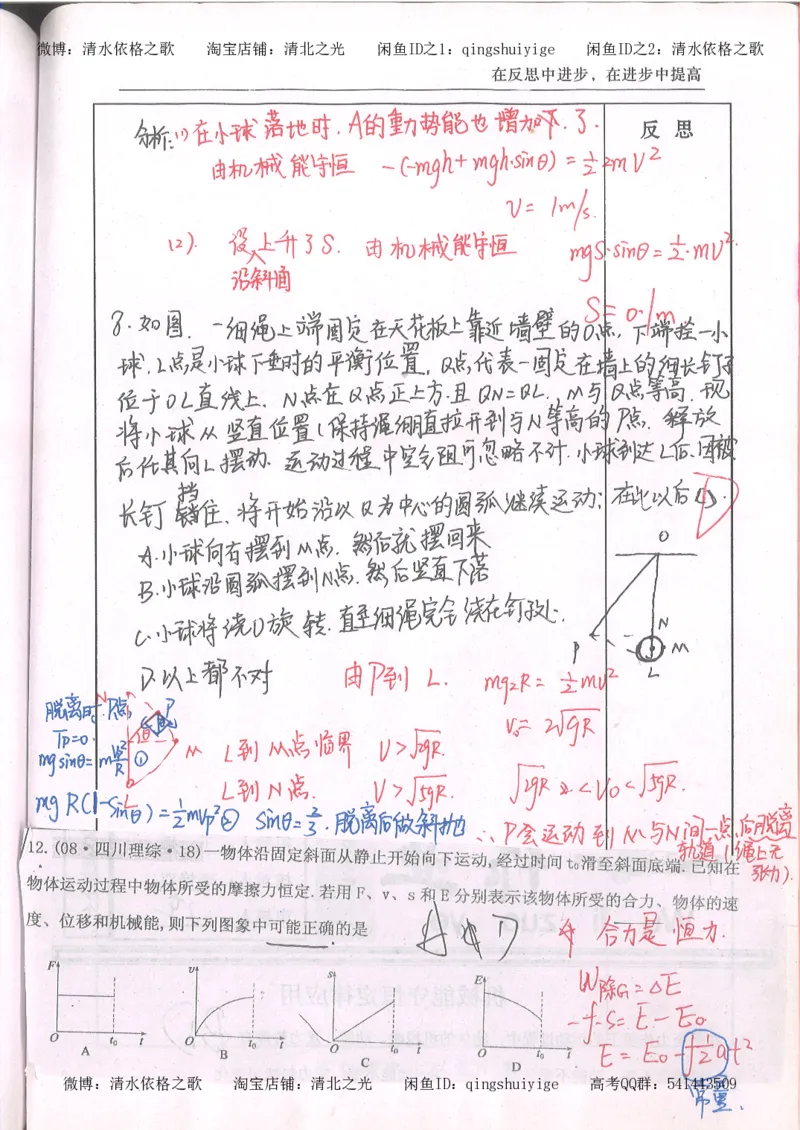 微博：清水依格之歌 淘宝店铺：清北之光 闲鱼ID之1：qingshuiyige 闲鱼ID之2：清水依格之歌
在反思中进步，在进步中提高
反思
分析：(1)在小球落地时，A的重力势能也增加了.
由机械能守恒 -(-mgh+mgh·sinθ)=½2mV²
V=1m/s.
(2). 设上升了S. 由机械能守恒 mgS·sinθ=½·mV².
沿斜面
S=0.1m
8.如图. 一细绳上端固定在天花板上靠近墙壁的O点，下端拴一小
球.L点是小球下垂时的平衡位置，Q点代表一固定在墙上的细长钉子
位于OL直线上. N点在Q点正上方.且QN=QL.，M与Q点等高.现
将小球从竖直位置(保持绳绷直拉开到与N等高的P点. 释放
后任其向L摆动. 运动过程中空气阻可忽略不计.小球到达L后.因被
长钉挡住、将开始沿以Q为中心的圆弧继续运动；在此以后( ).
A.小球向右摆到M点，然后就摆回来
B.小球沿圆弧摆到N点.然后竖直下落
C.小球将绕Q旋转.直至细绳完全绕在钉子处.
D.以上都不对
O
N
P
M
L
由P到L. mg2R=½mv²
V₀=2√gR
脱离时.P点
Tp=0.
mgsinθ=m V²/R ①
L到M点临界 V>√2gR.
L到N点. V>√5gR. √2gR<V₀<√5gR.
mgR(1-sinθ)=½mVp²② sinθ=⅔.脱离后做斜抛
∴P会运动到M与N间一点,后脱离
轨道(绳上无
张力).
12.(08·四川理综·18)一物体沿固定斜面从静止开始向下运动,经过时间t₀滑至斜面底端.已知在
物体运动过程中物体所受的摩擦力恒定.若用F、v、s和E分别表示该物体所受的合力、物体的速
度、位移和机械能,则下列图象中可能正确的是
A D
合力是恒力.
W除G=ΔE
-f·s=E-E₀
E=E₀-f½at²
常量.
F O t₀ t A
v O t₀ t B
s O t₀ t C
E O t₀ t D
微博：清水依格之歌 淘宝店铺：清北之光 闲鱼ID：qingshuiyige 高考QQ群：541443509